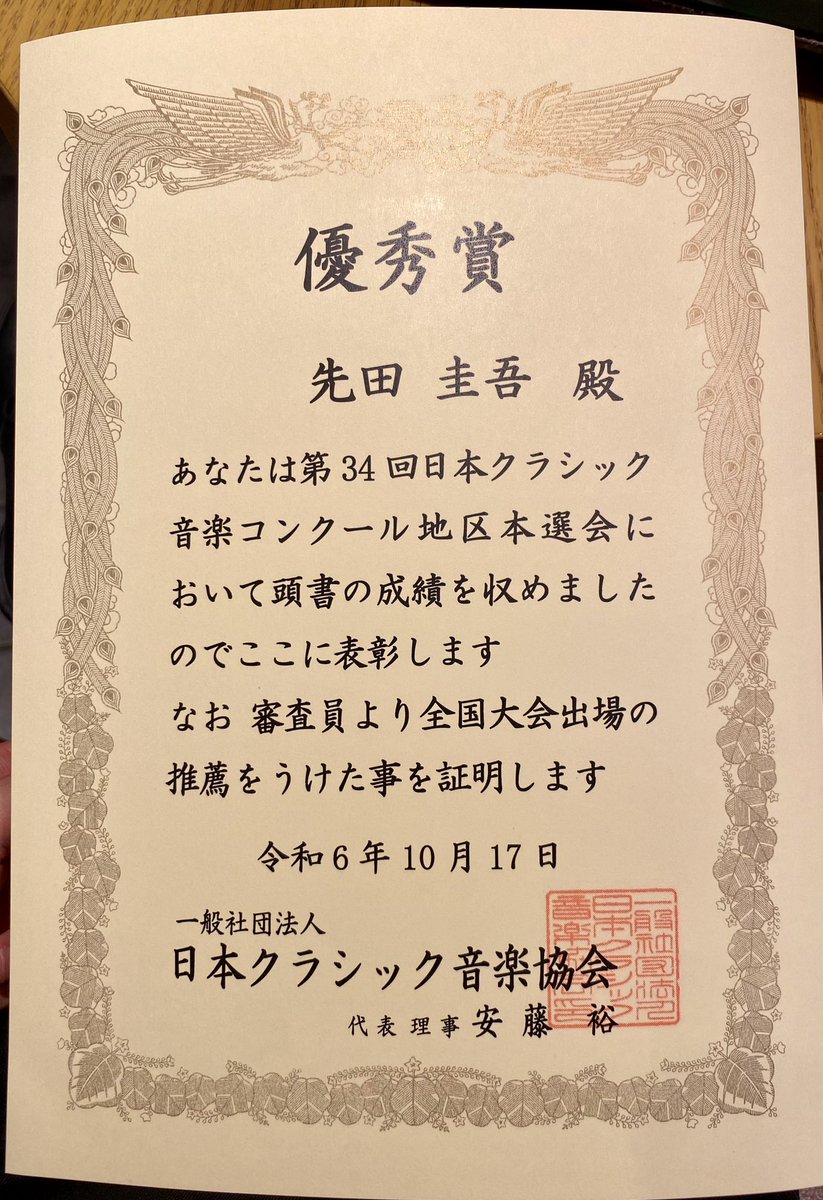 優秀賞
先田 圭吾 殿
あなたは第34回日本クラシック
音楽コンクール地区本選会に
おいて頭書の成績を収めました
のでここに表彰します
なお 審査員より全国大会出場の
推薦をうけた事を証明します
令和6年10月17日
一般社団法人
日本クラシック音楽協会
代表理事 安藤 裕